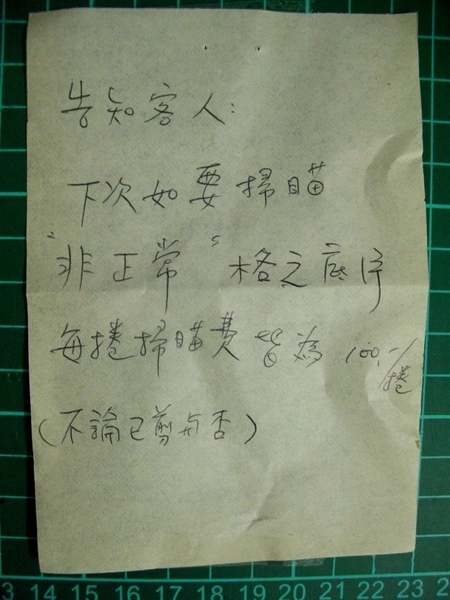 告知客人:
下次如要掃瞄
"非正常"格之底片
每捲掃瞄費皆為100,-/捲
(不論已剪与否)
13 14 15 16 17 18 19 20 21 22 23